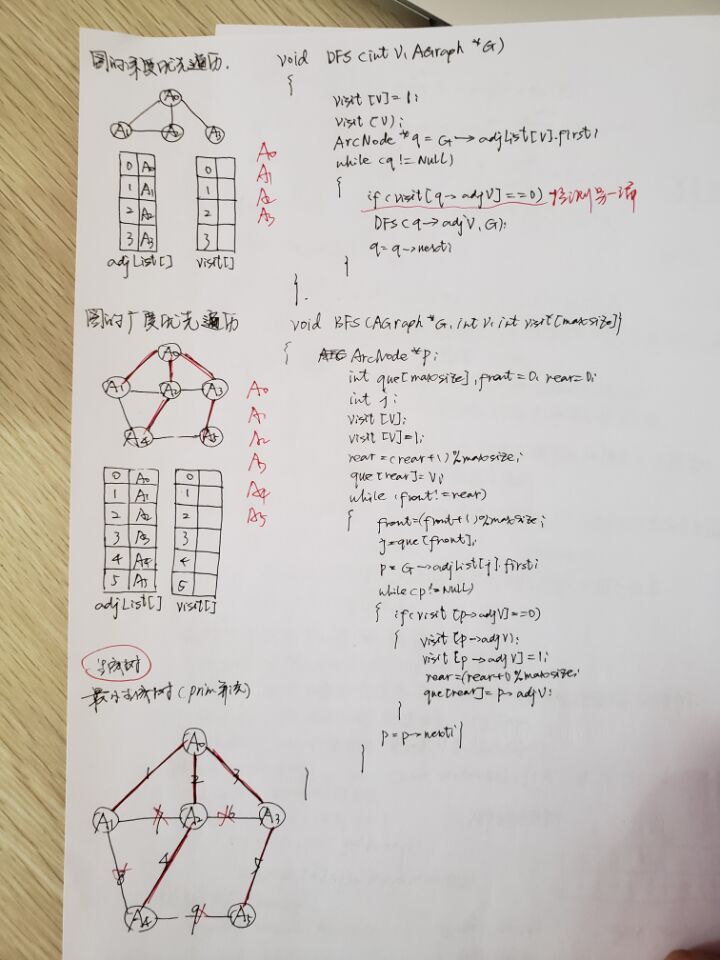 图的深度优先遍历.
A0
A1 A2 A3
0 A0
1 A1
2 A2
3 A3
adjList[]
0
1
2
3
visit[]
A0
A1
A2
A3
void DFS(int V, AGraph *G)
{
visit[V]=1;
visit(V);
ArcNode *q = G→adjList[V].first;
while(q != Null)
{
if(visit[q→adjV]==0)
DFS(q→adjV, G);
q=q→next;
}
}
图的广度优先遍历
A0
A1 A2 A3
A4 A5
0 A0
1 A1
2 A2
3 A3
4 A4
5 A5
adjList[]
0
1
2
3
4
5
visit[]
A0
A1
A2
A3
A4
A5
void BFS(AGraph *G, int V, int visit[maxsize])
{
ArcNode *p;
int que[maxsize], front=0, rear=0;
int j;
visit[V];
visit[V]=1;
rear=(rear+1)%maxsize;
que[rear]=V;
while(front!=rear)
{
front=(front+1)%maxsize;
j=que[front];
p=G→adjList[j].first;
while(p!=NULL)
{ if(visit[p→adjV]==0)
{ visit(p→adjV);
visit[p→adjV]=1;
rear=(rear+1)%maxsize;
que[rear]=p→adjV;
}
p=p→next; }
}
}
生成树
最小生成树(prim算法)
A0
1 2 3
A1 7 A2 6 A3
8 4 5
A4 9 A5